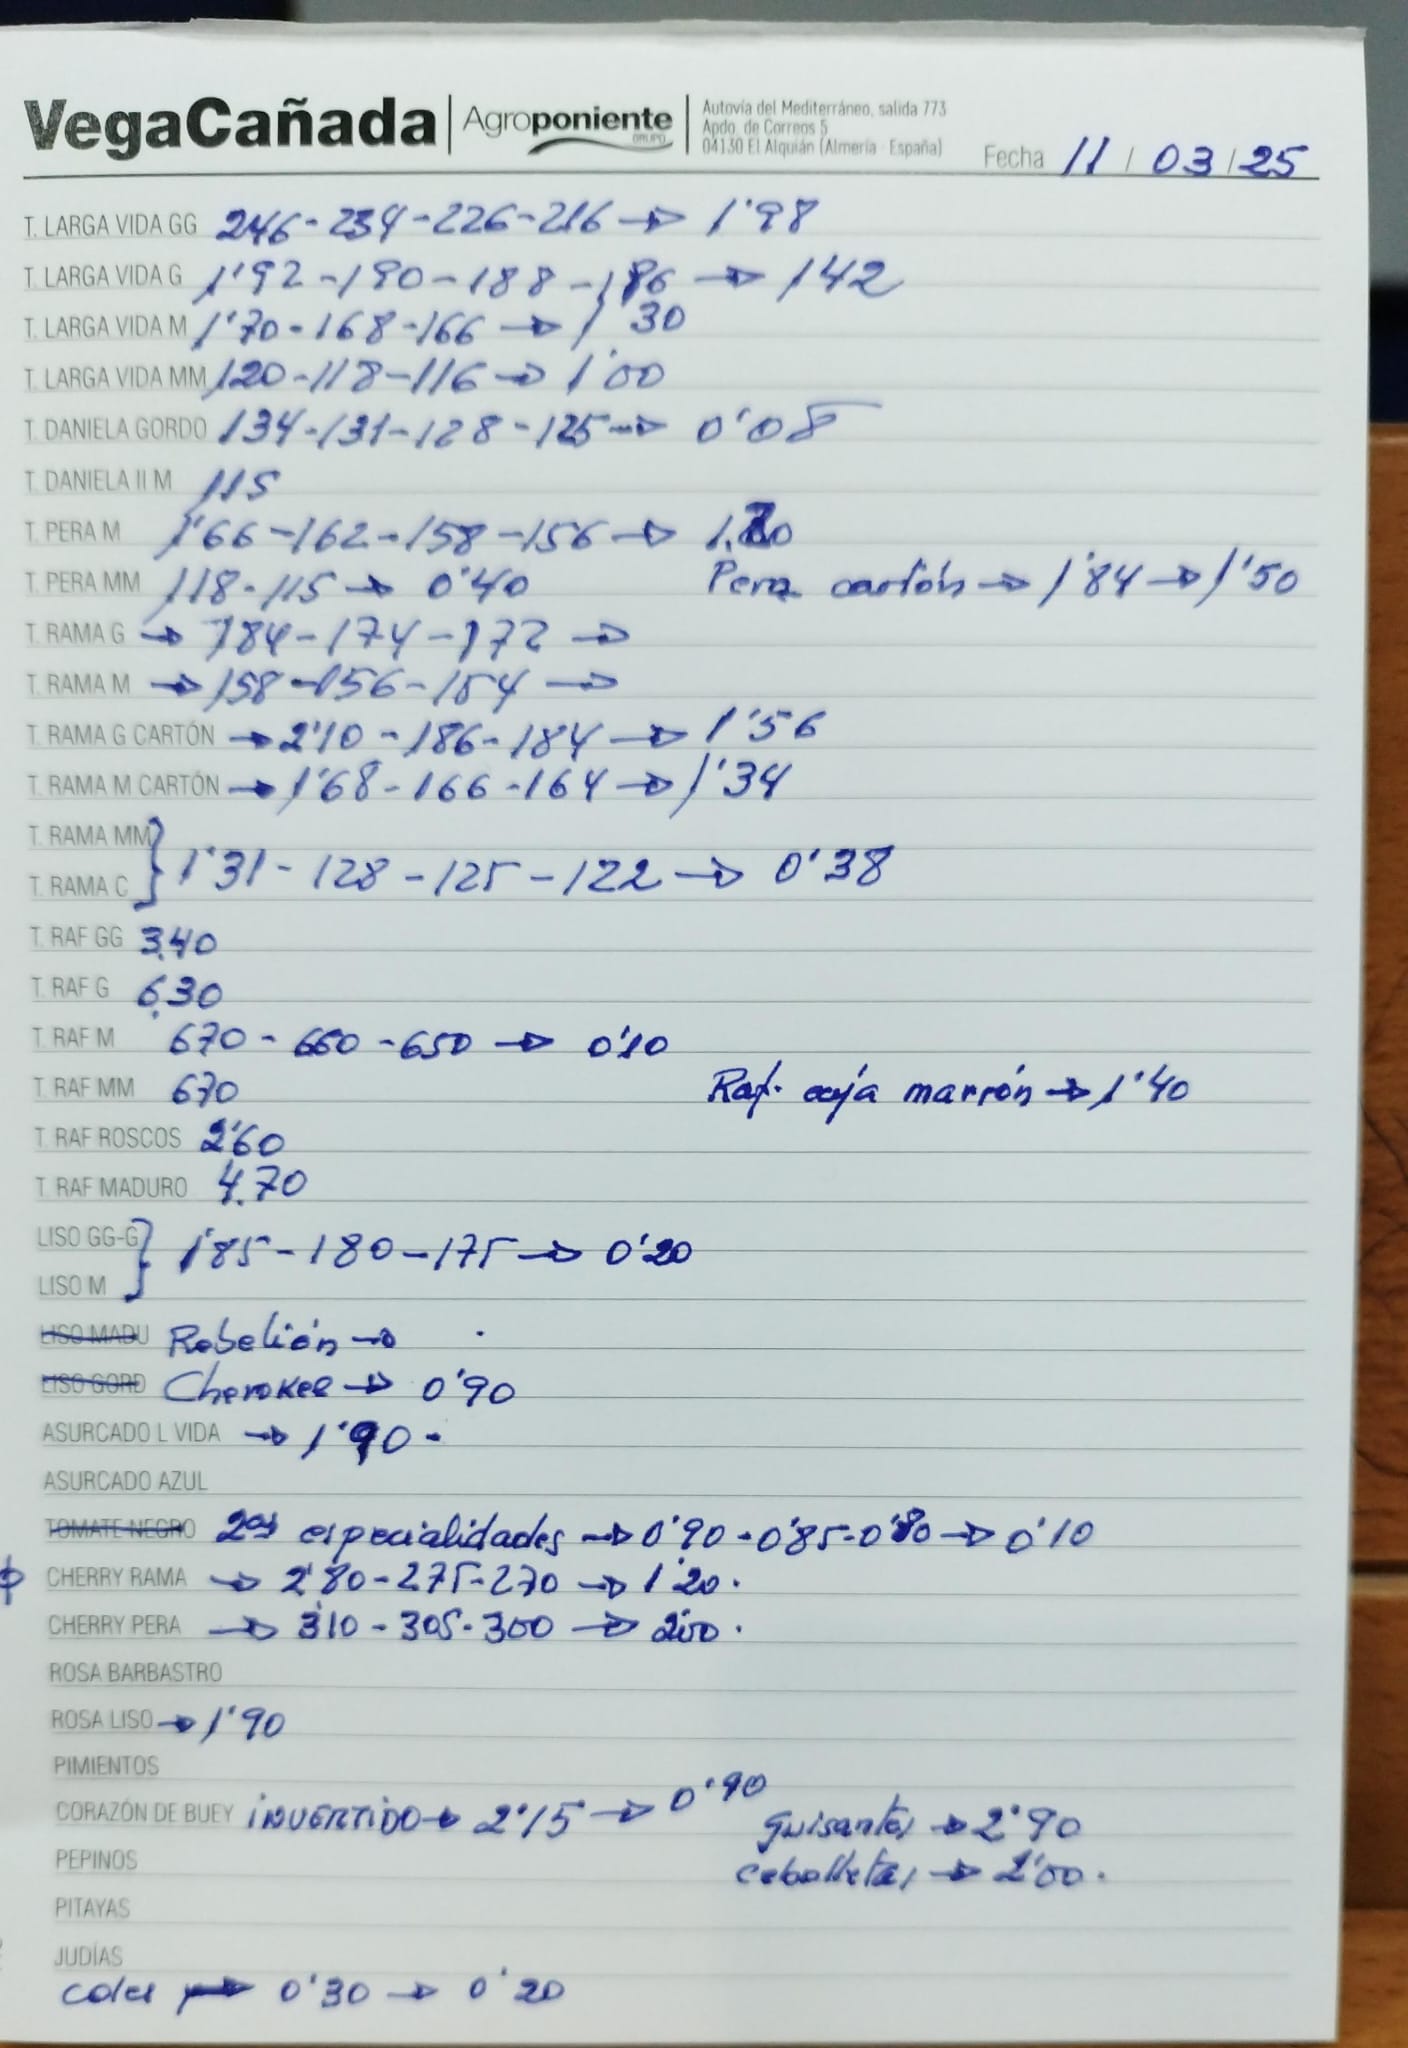 VegaCañada | Agroponiente GRUPO
Autovía del Mediterráneo, salida 773
Apdo. de Correos 5
04130 El Alquián (Almería - España)
Fecha 11 / 03 / 25
T. LARGA VIDA GG 246 - 234 - 226 - 216 → 1'98
T. LARGA VIDA G 1'92 - 190 - 188 - 186 → 142
T. LARGA VIDA M 1'70 - 168 - 166 → 1'30
T. LARGA VIDA MM 120 - 118 - 116 → 1'00
T. DANIELA GORDO 134 - 131 - 128 - 125 → 0'08
T. DANIELA II M 115
T. PERA M 1'66 - 162 - 158 - 156 →
T. PERA MM 118 - 115 → 0'40 Pera cartón → 1'84 → 1'50
T. RAMA G → 184 - 174 - 172 →
T. RAMA M → 158 - 156 - 154 →
T. RAMA G CARTÓN → 2'10 - 186 - 184 → 1'56
T. RAMA M CARTÓN → 1'68 - 166 - 164 → 1'34
T. RAMA MM
T. RAMA C } 1'31 - 128 - 125 - 122 → 0'38
T. RAF GG 3.40
T. RAF G 6.30
T. RAF M 670 - 660 - 650 → 0'10
T. RAF MM 670 Raf. caja marrón → 1'40
T. RAF ROSCOS 2'60
T. RAF MADURO 4.70
LISO GG-G
LISO M } 1'85 - 180 - 175 → 0'20
LISO MADU Rebelión →
LISO GORD Cherokee → 0'90
ASURCADO L VIDA → 1'90 -
ASURCADO AZUL
TOMATE NEGRO 2as especialidades → 0'90 - 0'85 - 0'80 → 0'10
CHERRY RAMA → 2'80 - 275 - 270 → 1'20.
CHERRY PERA → 310 - 305 - 300 → 2'00.
ROSA BARBASTRO
ROSA LISO → 1'90
PIMIENTOS
CORAZÓN DE BUEY INVERTIDO → 2'15 → 0'90 guisantes → 2'90
PEPINOS cebolletas → 2'00.
PITAYAS
JUDÍAS
coles → 0'30 → 0'20